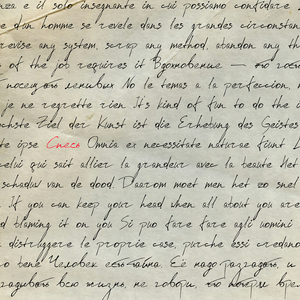 enza e il solo insegnante in cui possiamo confidare
e d'un homme se revele dans les grandes circonstan
revise any system, scrap any method, abandon any th
s of the job requires it Вдохновение — это гость
посещать ленивых No le temas a la perfeccion, n
je ne regrette rien It's kind of fun to do the i
chste Ziel der Kunst ist die Erhebung des Geistes
te ipse Спесь Omnia ex necessitate naturae fiunt L
celui qui sait allier la grandeur avec la beaute Het
schaduw van de dood. Daarom moet men het zo snel
If you can keep your head when all about you are
d blaming it on you Si puo fare fare agli uomini
distruggere le proprie case, purche essi credano
o bene Человек есть тайна. Ее надо разгадать, и
гадывать всю жизнь, не говори, что потерял врем